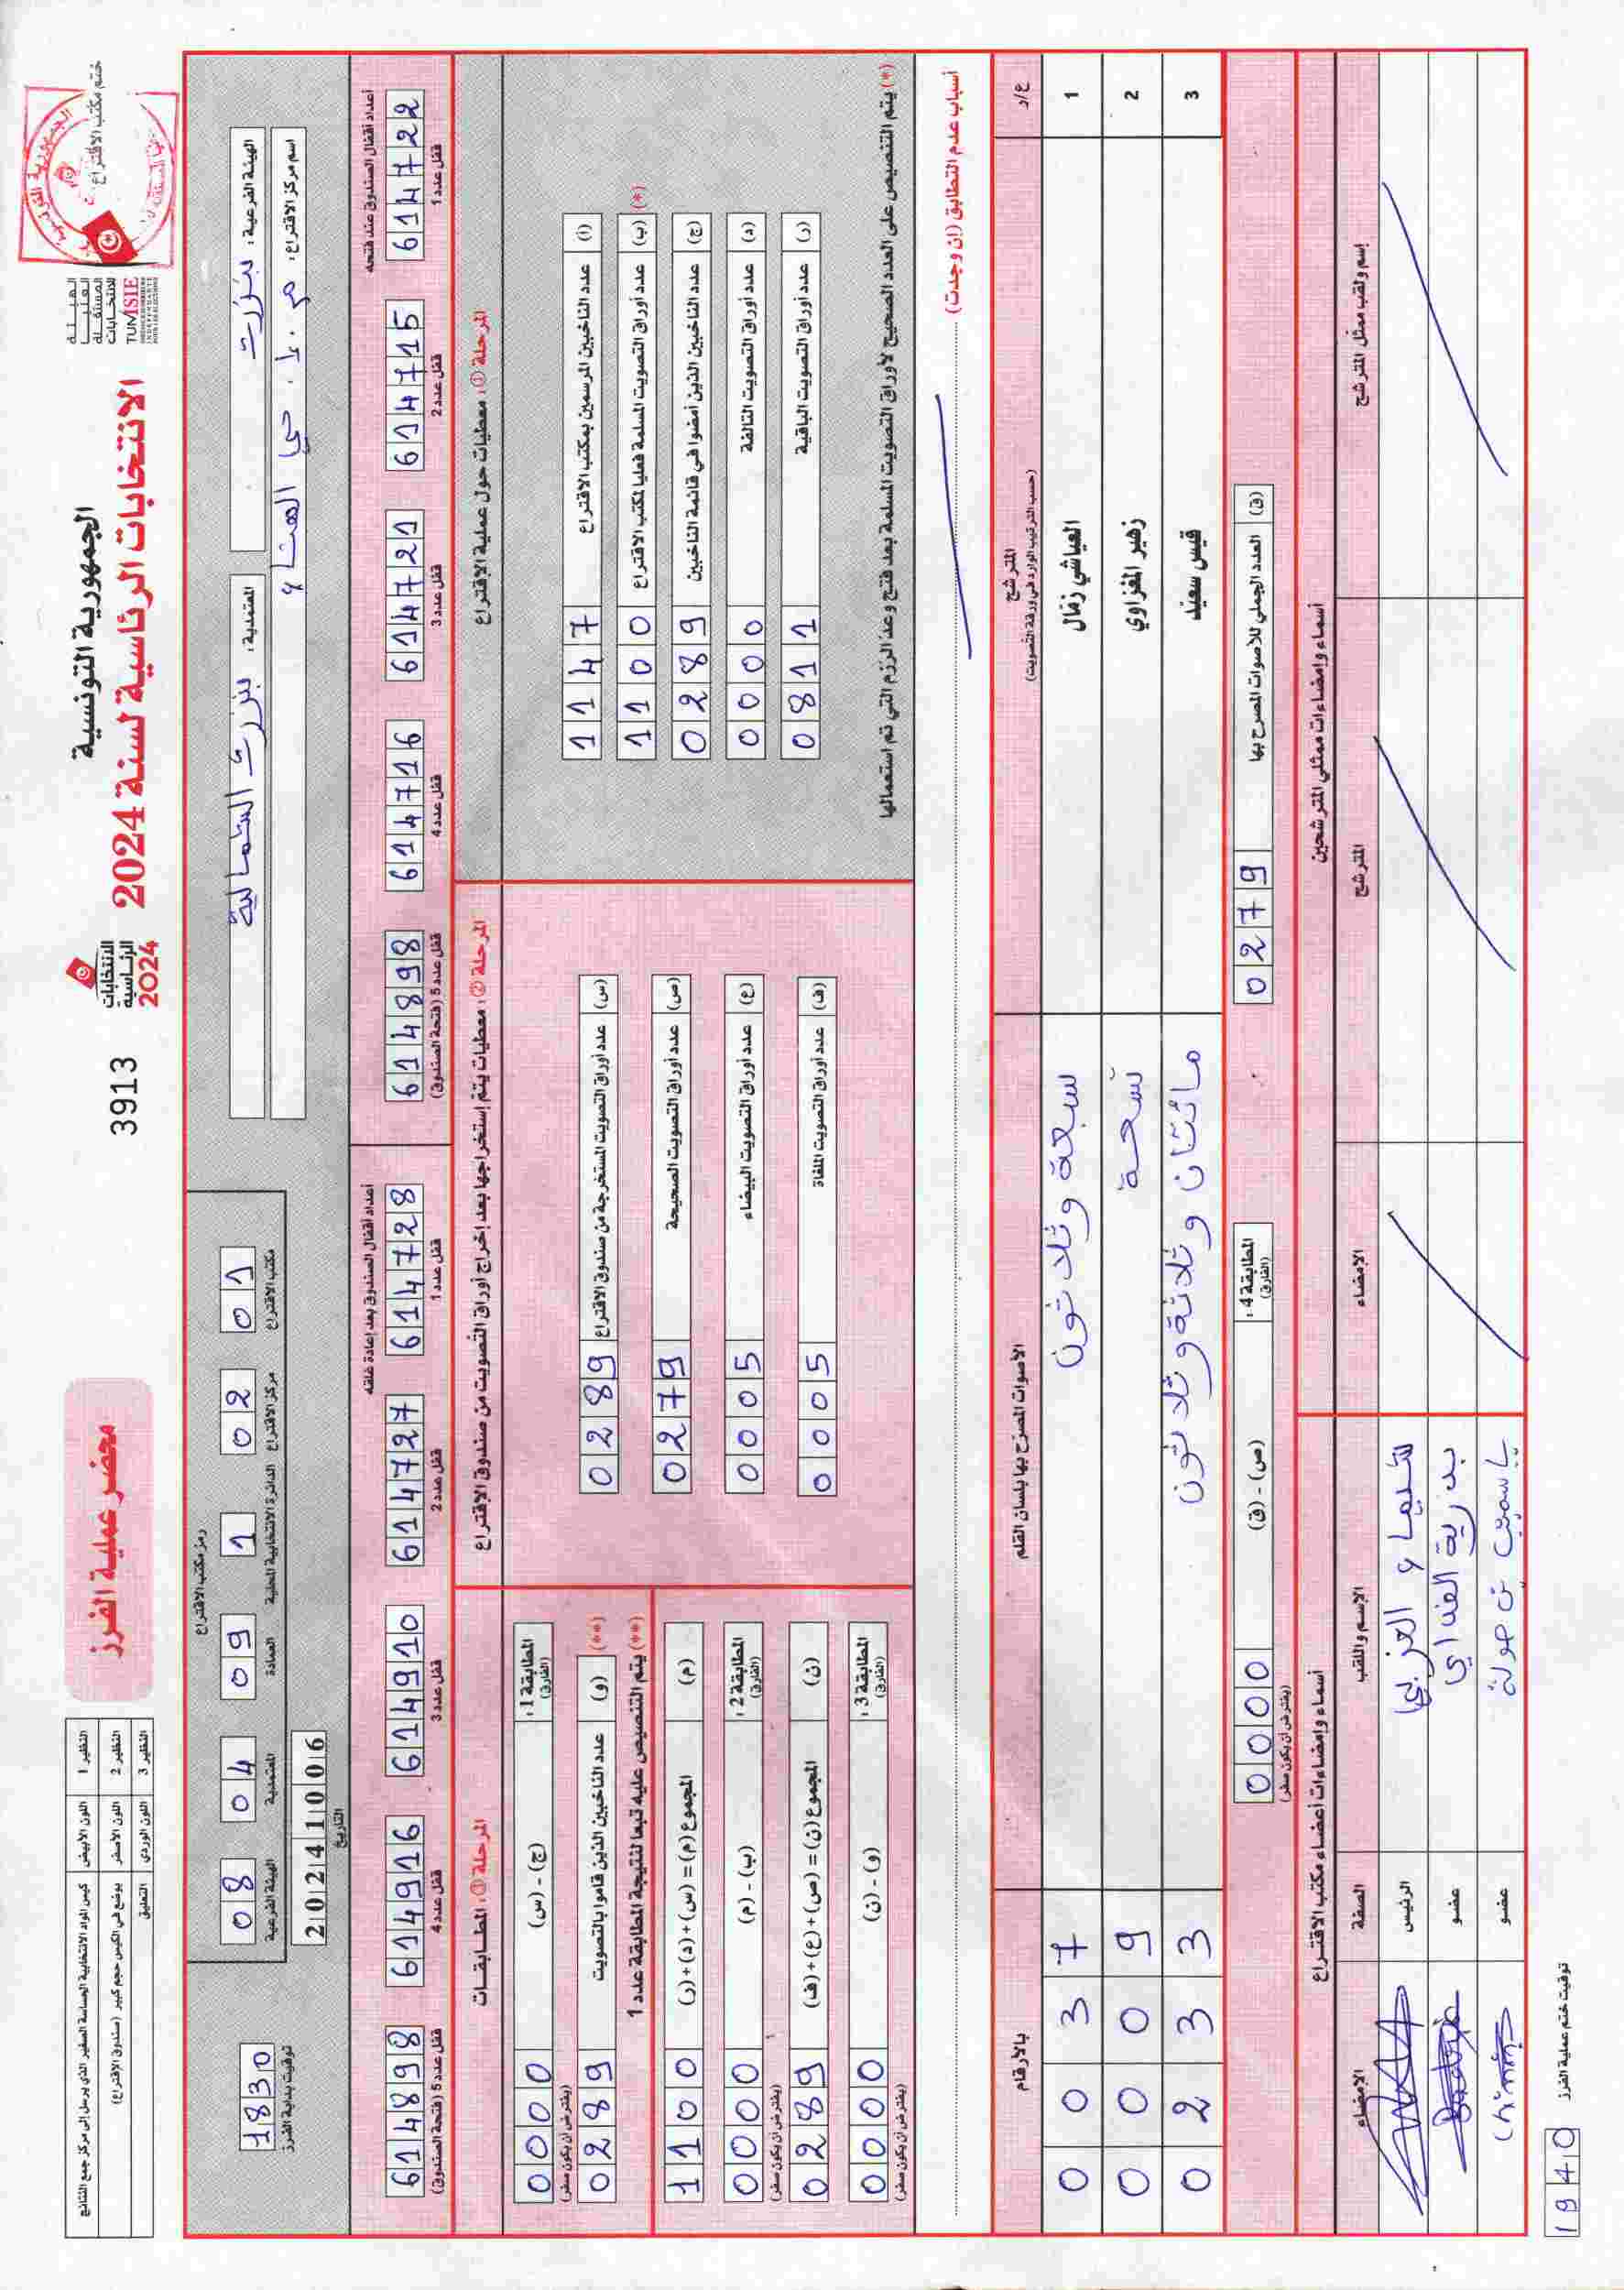 الجمهورية التونسية
الانتخابات الرئاسية لسنة 2024
الهيئة
العليا
المستقلة
للانتخابات
TUNISIE
ختم مكتب الاقتراع
الانتخابات
الرئاسية
2024
3913
محضر عملية الفرز
النظير 1 اللون الأبيض كيس المواد الانتخابية الحساسة الصغير الذي يرسل إلى مركز جمع النتائج
النظير 2 اللون الأصفر يوضع في الكيس حجم كبير (صندوق الاقتراع)
النظير 3 اللون الوردي التعليق
الهيئة الفرعية: بنزرت
المعتمدية: بنزرت الشمالية
اسم مركز الاقتراع: م.ا. حي الهناء
رمز مكتب الاقتراع
08 04 09 1 02 01
الهيئة الفرعية المعتمدية العمادة الدائرة الانتخابية المحلية مركز الاقتراع مكتب الاقتراع
20241006
التاريخ
1830
توقيت بداية الفرز
أعداد أقفال الصندوق عند فتحه
614722 614715 614721 614716 614898
قفل عدد 1 قفل عدد 2 قفل عدد 3 قفل عدد 4 قفل عدد 5 (فتحة الصندوق)
أعداد أقفال الصندوق بعد إعادة غلقه
614728 614727 614910 614916 614898
قفل عدد 1 قفل عدد 2 قفل عدد 3 قفل عدد 4 قفل عدد 5 (فتحة الصندوق)
المرحلة ①: معطيات حول عملية الاقتراع
(أ) عدد الناخبين المرسمين بمكتب الاقتراع 1147
(*) (ب) عدد أوراق التصويت المسلمة فعليا لمكتب الاقتراع 1100
(ج) عدد الناخبين الذين أمضوا في قائمة الناخبين 0289
(د) عدد أوراق التصويت التالفة 0000
(ر) عدد أوراق التصويت الباقية 0811
(*) يتم التنصيص على العدد الصحيح لأوراق التصويت المسلمة بعد فتح وعدّ الرزم التي تم استعمالها
المرحلة ②: معطيات يتم إستخراجها بعد إخراج أوراق التصويت من صندوق الاقتراع
(س) عدد أوراق التصويت المستخرجة من صندوق الاقتراع 0289
(ص) عدد أوراق التصويت الصحيحة 0279
(ع) عدد أوراق التصويت البيضاء 0005
(ف) عدد أوراق التصويت الملغاة 0005
المرحلة ③: المطابقات
المطابقة 1: (الفارق) (ج) - (س) 0000
(يفترض أن يكون صفر)
(**) (و) عدد الناخبين الذين قاموا بالتصويت 0289
(**) يتم التنصيص عليه تبعا لنتيجة المطابقة عدد 1
(م) المجموع (م) = (س) + (د) + (ر) 1100
المطابقة 2: (الفارق) (ب) - (م) 0000
(يفترض أن يكون صفر)
(ن) المجموع (ن) = (ص) + (ع) + (ف) 0289
المطابقة 3: (الفارق) (و) - (ن) 0000
(يفترض أن يكون صفر)
أسباب عدم التطابق (إن وجدت)
ع/د المترشح الأصوات المصرّح بها بلسان القلم بالأرقام
(حسب الترتيب الوارد في ورقة التصويت)
1 العياشي زمّال سبعة وثلاثون 0037
2 زهير المغزاوي تسعة 0009
3 قيس سعيّد مائتان وثلاثة وثلاثون 0233
(ق) العدد الجملي للأصوات المصرح بها 0279
المطابقة 4: (الفارق) (ص) - (ق) 0000
(يفترض أن يكون صفر)
أسماء وإمضاءات ممثلي المترشحين
إسم ولقب ممثل المترشح المترشح الإمضاء
أسماء وإمضاءات أعضاء مكتب الاقتراع
الإسم واللقب الصفة الإمضاء
شيماء العزيبي الرئيس
بدرية الغداي عضو
ياسمين بن صولة عضو
توقيت ختم عملية الفرز
1940